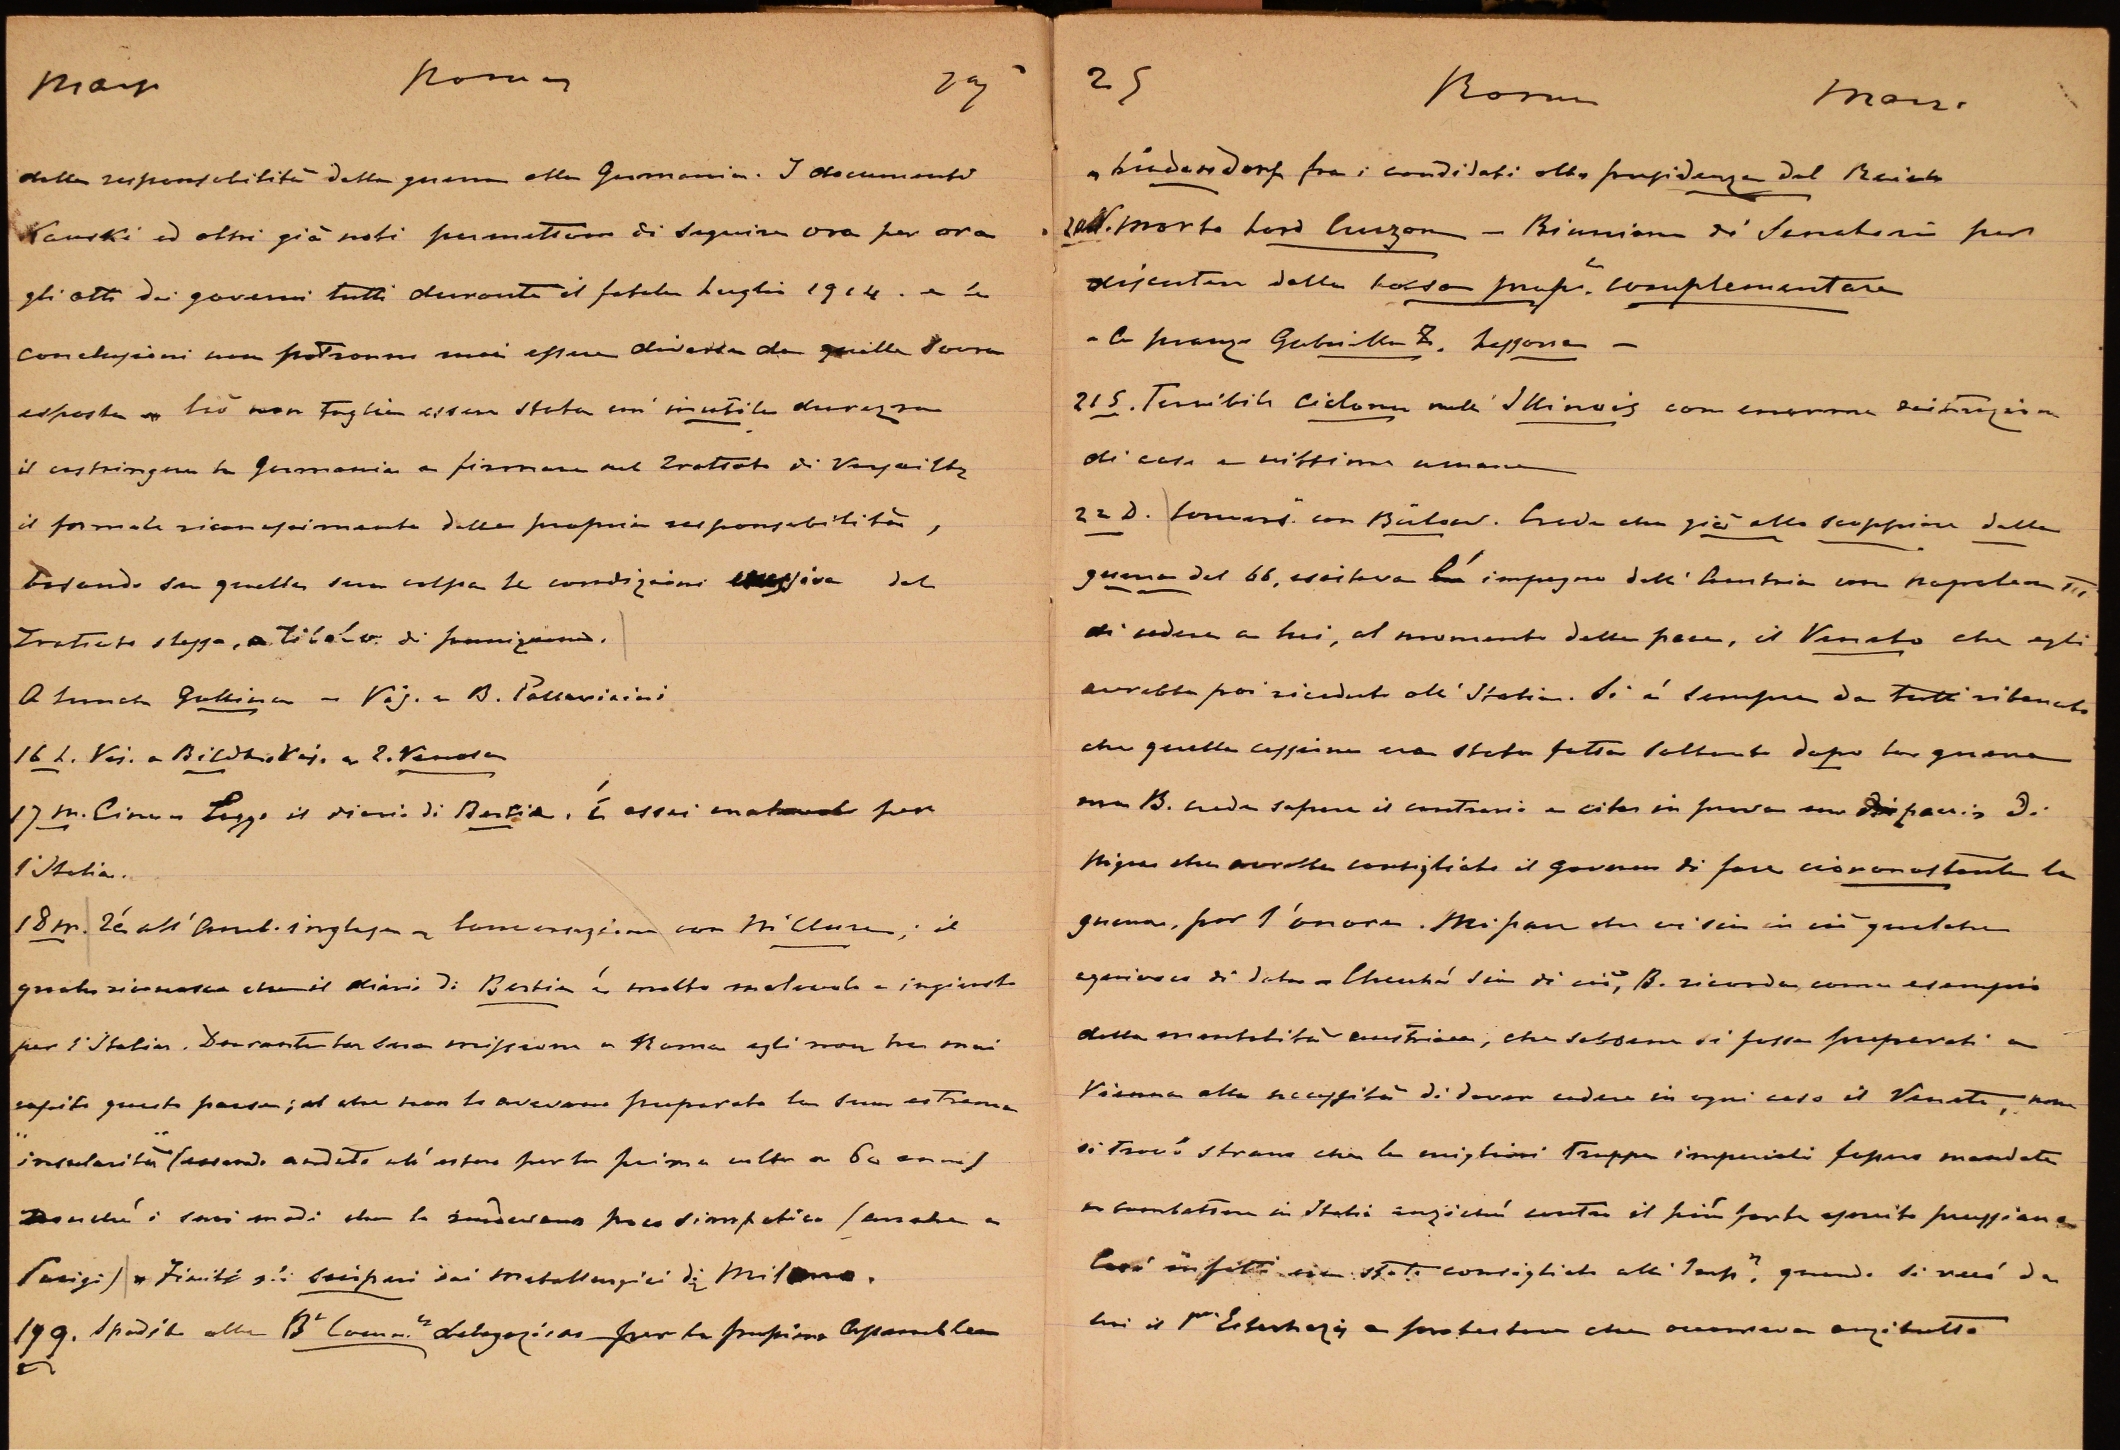 Marzo Roma 25
della responsabilità della guerra alla Germania. I documenti
Kauski ed altri già noti permettono di seguire ora per ora
gli atti dei governi tutti durante il fatale Luglio 1914. e le
conclusioni non potranno mai essere diverse da quelle sovra
esposte - Ciò non toglie essere stata un' inutile durezza
il costringere la Germania a firmare nel Trattato di Versailles
il formale riconoscimento della propria responsabilità,
basando su quella sua colpa le condizioni del
Trattato stesso, a titolo di punizione.
A lunch Gallina - Vis. a B. Pallavicini
16 L. Vis. a Bildt. Vis. a Venosa
17 M. Cine - Leggo il diario di Bertie. È assai malevolo per
l'Italia.
18 M. Té all' Amb. inglese - Conversazione con McClure; il
quale riconosce che il diario di Bertie è molto malevolo e ingiusto
per l'Italia. Durante la sua missione a Roma egli non ha mai
capito questo paese; al che non lo avevano preparato la sua estrema
"insularità" (essendo andato all' estero per la prima volta a 60 anni)
nonché i suoi modi che lo rendevano poco simpatico (anche a
Parigi) - Finiti gli scioperi dei metallurgici di Milano.
19 G. Spedito alla B. Comm. delegazione per la prossima Assemblea
25 Roma Marzo
- Lüdendorf fra i candidati alla presidenza del Reich
20 V. Morto Lord Curzon - Riunione di Senatori per
discutere della tassa complementare
- A pranzo Gabriella Z. Lessona -
21 S. Terribile ciclone nell' Illinois con enorme distruzione
di case e vittime umane
22 D. Convers. con Bülow. Crede che già allo scoppiare della
guerra del 66, esisteva impegno dell' Austria con Napoleone III
di cedere a lui, al momento della pace, il Veneto che egli
avrebbe poi riceduto all' Italia. Si è sempre da tutti ritenuto
che quella cessione era stata fatta soltanto dopo la guerra
ma B. crede sapere il contrario e cita in prova un dispaccio di
Nigra che avrebbe consigliato il governo di fare ciononostante la
guerra, per l'onore. Mi pare che vi sia in ciò qualche
equivoco di date - Checché sia di ciò, B. ricorda come esempio
della mentalità austriaca, che sebbene si fosse preparati a
Vienna alla necessità di dover cedere in ogni caso il Veneto, non
si trovò strano che le migliori truppe imperiali fossero mandate
a combattere in Italia anziché contro il più forte esercito prussiano
Così infatti era stato consigliato all' Imp., quando si recò da
lui il Esterhazy a protestare che occorreva anzitutto